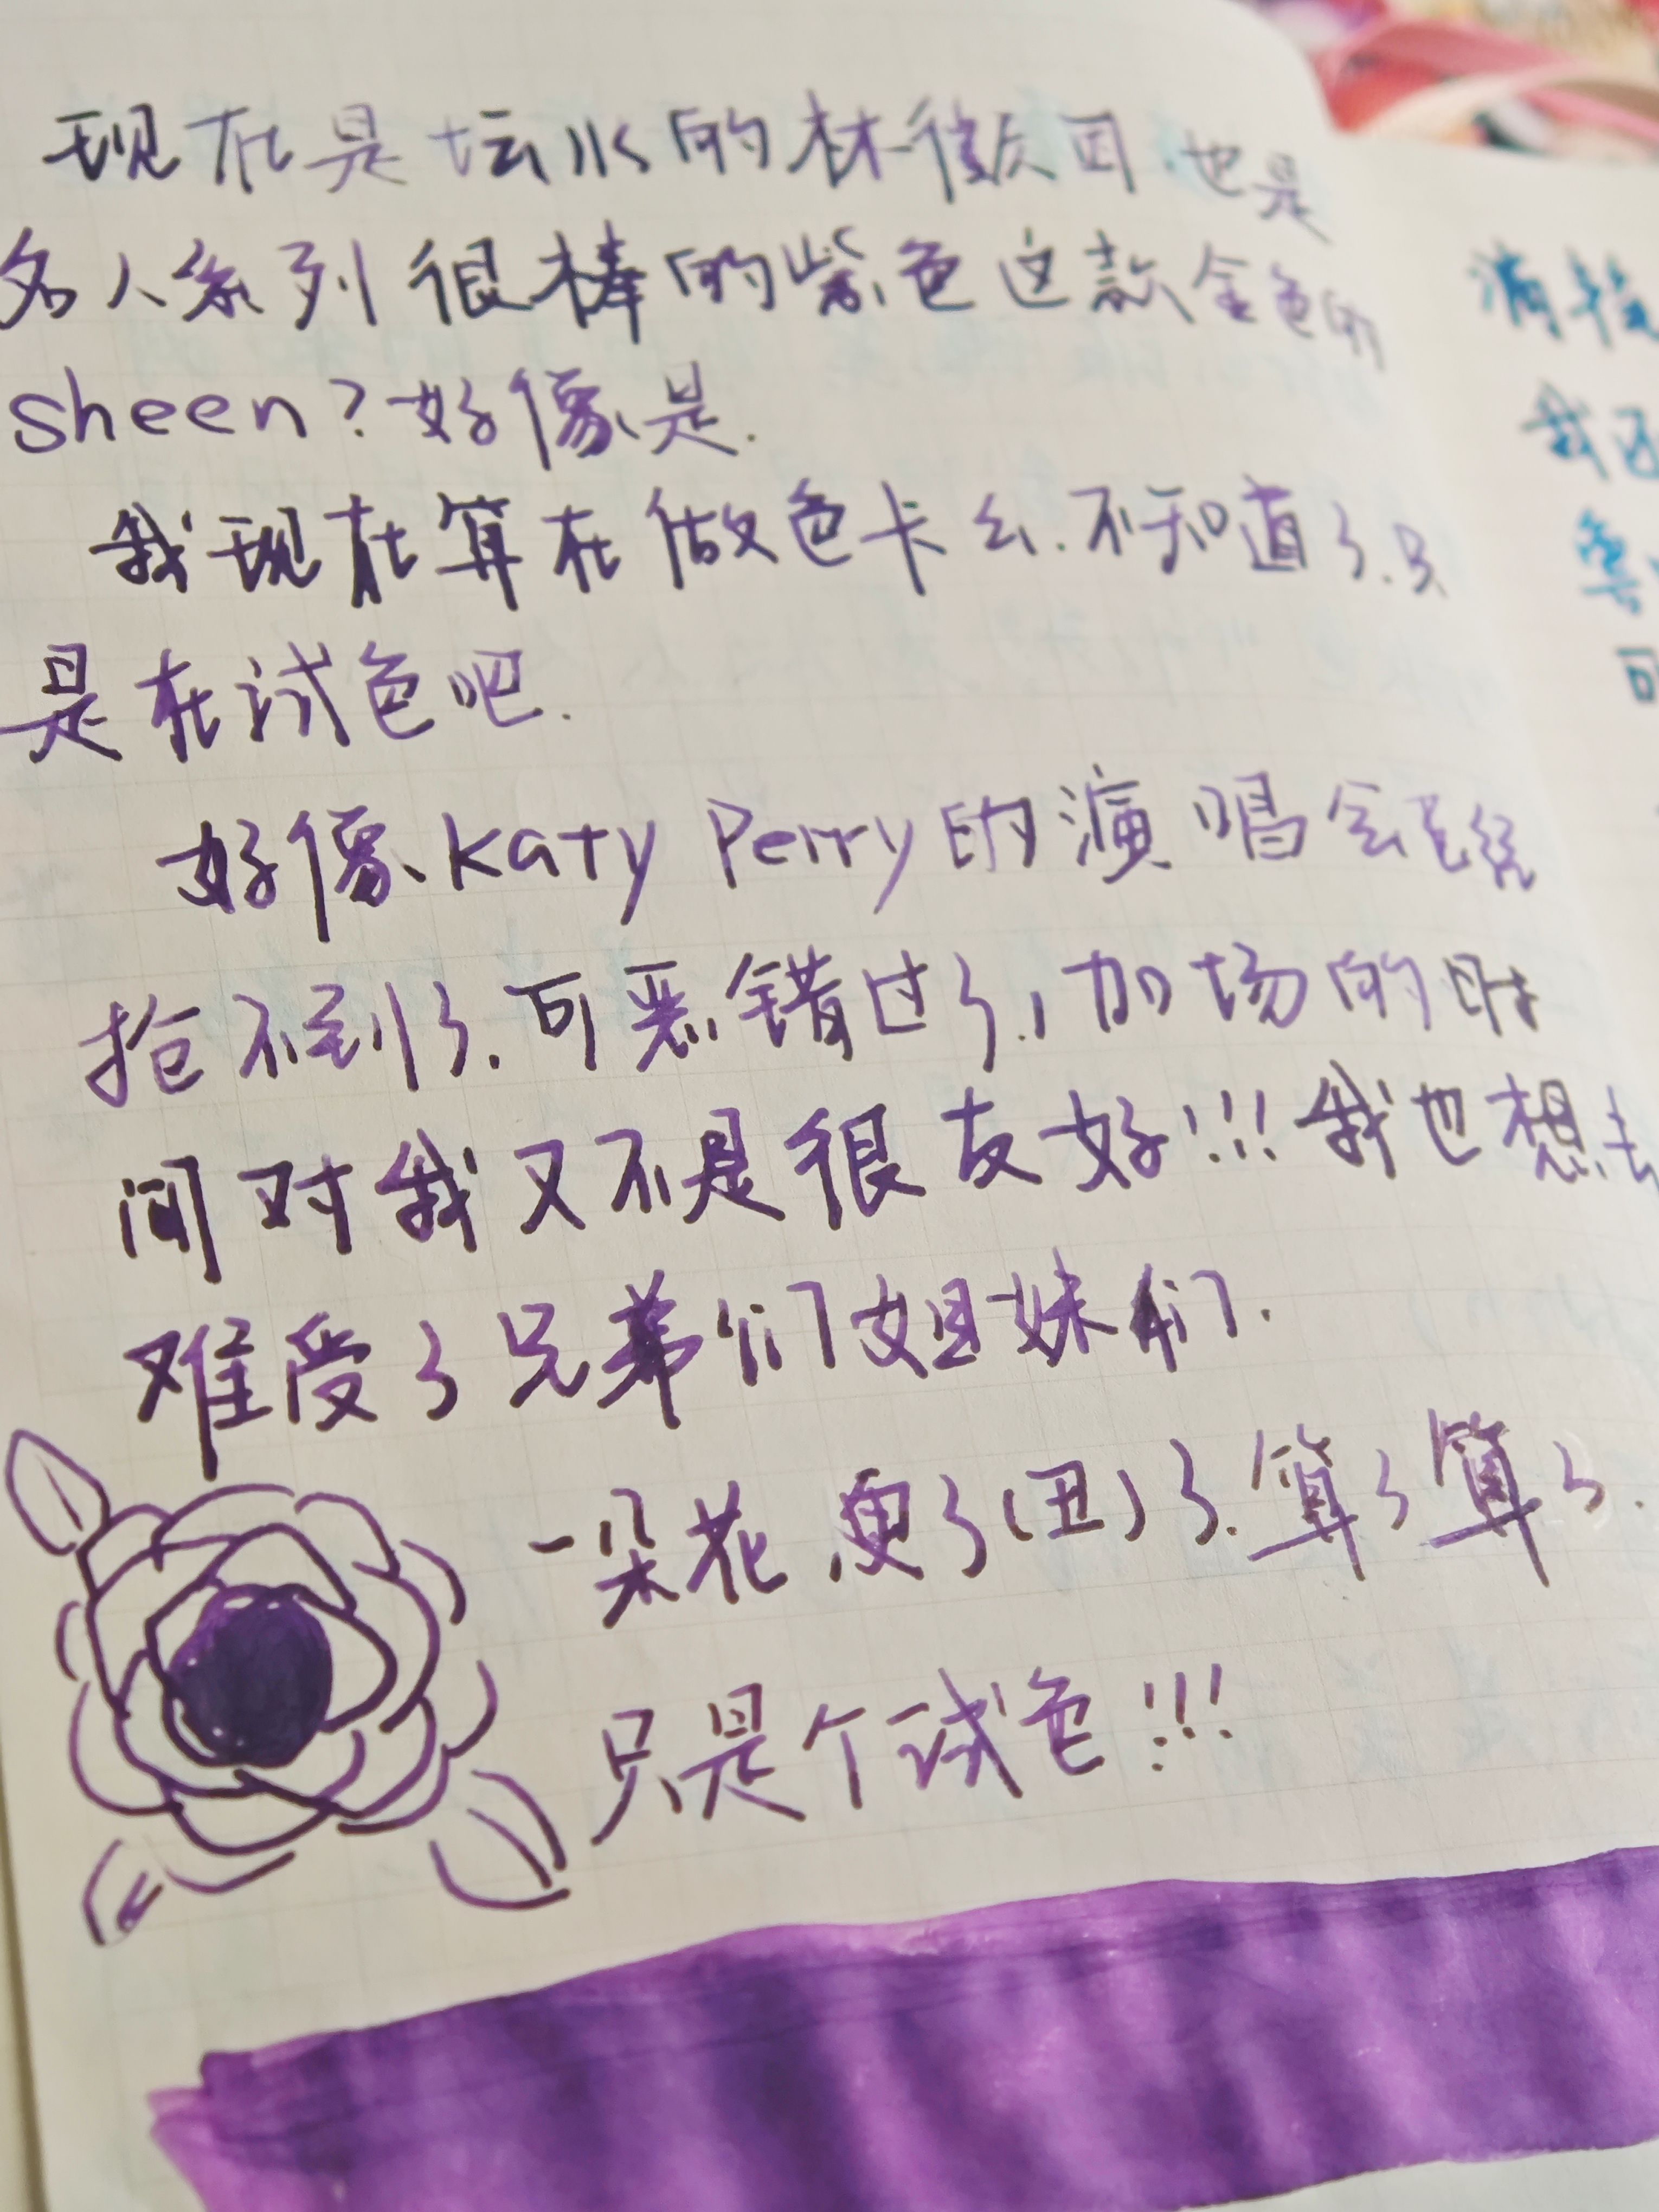 现在是坛水的林徽因.也是
名人系列很棒的紫色这款金色的
sheen?好像是.
我现在算在做色卡么.不知道了.只
是在试色吧.
好像Katy Perry的演唱会已经
抢不到了.可恶错过了,加场的时
间对我又不是很友好!!!我也想去
难受了兄弟们姐妹们.
一朵花,更了(丑)了.算了算了.
只是个试色!!!
我还
可